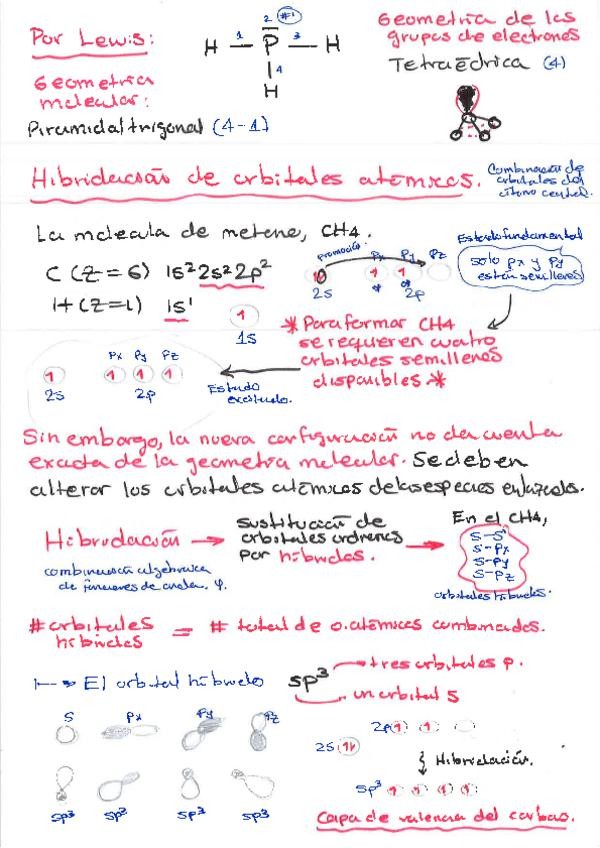 Por Lewis:
1 2 #1 3
H — P — H
4
H
Geometría de los
grupos de electrones
Tetraédrica (4)
Geometría
molecular:
Piramidal trigonal (4-1)
Hibridación de orbitales atómicos.
Combinación de
orbitales del
átomo central.
La molécula de metano, CH4.
C (Z=6) 1s² 2s² 2p²
H (Z=1) 1s¹
1
1s
promoción
Px Py Pz
2s 2p
Estado fundamental
solo px y py
están semillenos
* Para formar CH4
se requieren cuatro
orbitales semillenos
disponibles *
Px Py Pz
1 1 1 1
2s 2p
Estado
excitado.
Sin embargo, la nueva configuración no da cuenta
exacta de la geometría molecular. Se deben
alterar los orbitales atómicos de las especies enlazadas.
Hibridación →
combinación algebraica
de funciones de onda, φ.
sustitución de
orbitales ordinarios
por híbridos.
En el CH4,
S-S
S-Px
S-Py
S-Pz
orbitales híbridos.
# orbitales híbridos = # total de o. atómicos combinados.
1 → El orbital híbrido sp³
tres orbitales p.
un orbital s
S Px Py Pz
sp³ sp³ sp³ sp³
2p 1 1
2s 1
Hibridación.
sp³ 1 1 1 1
Capa de valencia del carbono.